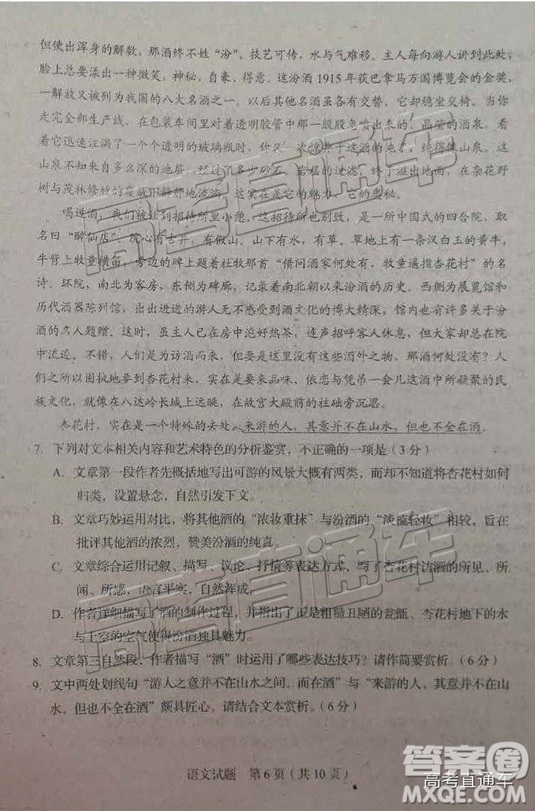 但使出浑身的解数，那酒终不姓“汾”。技艺可传，水与气难移。主人每向游人讲到此处，
脸上总要漾出一种微笑，神秘，自豪，得意。这汾酒1915年获巴拿马万国博览会的金奖，
一解放又被列为我国的八大名酒之一。以后其他名酒虽各有交替，它却稳坐交椅。当你
走完全部生产线，在包装车间里对着透明胶管中那一股股急喷出来的、晶莹的酒泉。看
着它迅速注满了一个个透明的玻璃瓶时，你只觉得，这是一汪山泉
山泉不知来自多么深的地层，经过
州与茂林修竹
唱迎酒，我们被让到招待所里小憩，这招待所也别致，是一所中国式的四合院，取
名曰“醉仙店”。院心有古井，有假山，山下有水，有草。草地上有一条汉白玉的黄牛，
牛背上牧童横笛，旁边的碑上题着杜牧那首“借问酒家何处有，牧童遥指杏花村”的名
诗。环院，南北为客房，东侧为碑廊，记录着南北朝以来汾酒的历史。西侧为展览馆和
历代酒器陈列馆，出出进进的游人无不感受到酒文化的博大精深。馆内也有许多关于汾
酒的名人题赠。这时，虽主人已在房中沏好热茶，连声招呼客人休息，但大家还是总在院
中流连。不错，人们是为访酒而来。但要是没有这些酒外之物，那酒何处没有？人
们之所以固执地要到杏花村来，实在是要来自己凭吊一会儿这酒中所凝聚的民
族文化，就像在八达岭长城上远眺，在故宫大殿前的柱础旁沉思。
杏花村，实在是一个特殊的去处。来游的人，其意并不在山水，但也不全在酒。
7. 下列对文本相关内容和艺术特色的分析鉴赏，不正确的一项是（3分）
A. 文章第一段作者先概括地写出可游的风景大概有两类，而却不知道将杏花村如何
归类，设置悬念，自然引发下文。
B. 文章巧妙运用对比，将其他酒的“浓妆重抹”与汾酒的“淡梳轻妆”相较，旨在
批评其他酒的浓烈，赞美汾酒的纯真。
C. 文章综合运用记叙、描写、议论、抒情等表达方式，写了杏花村访酒的所见、所
闻、所感，语言平实，自然浑成。
D. 作者详细描写了酒的制作过程，并指出了正是粗糙丑陋的瓮甑、杏花村地下的水
与上空的空气使得汾酒独具魅力。
8. 文章第三自然段，作者描写“酒”时运用了哪些表达技巧？请作简要赏析。（6分）
9. 文中两处划线句“游人之意并不在山水之间，而在酒”与“来游的人，其意并不在山
水，但也不全在酒”颇具匠心，请结合文本赏析。（6分）
语文试题 第6页（共10页）
高考直通车
答案圈
高考直通车
MXQE.COM